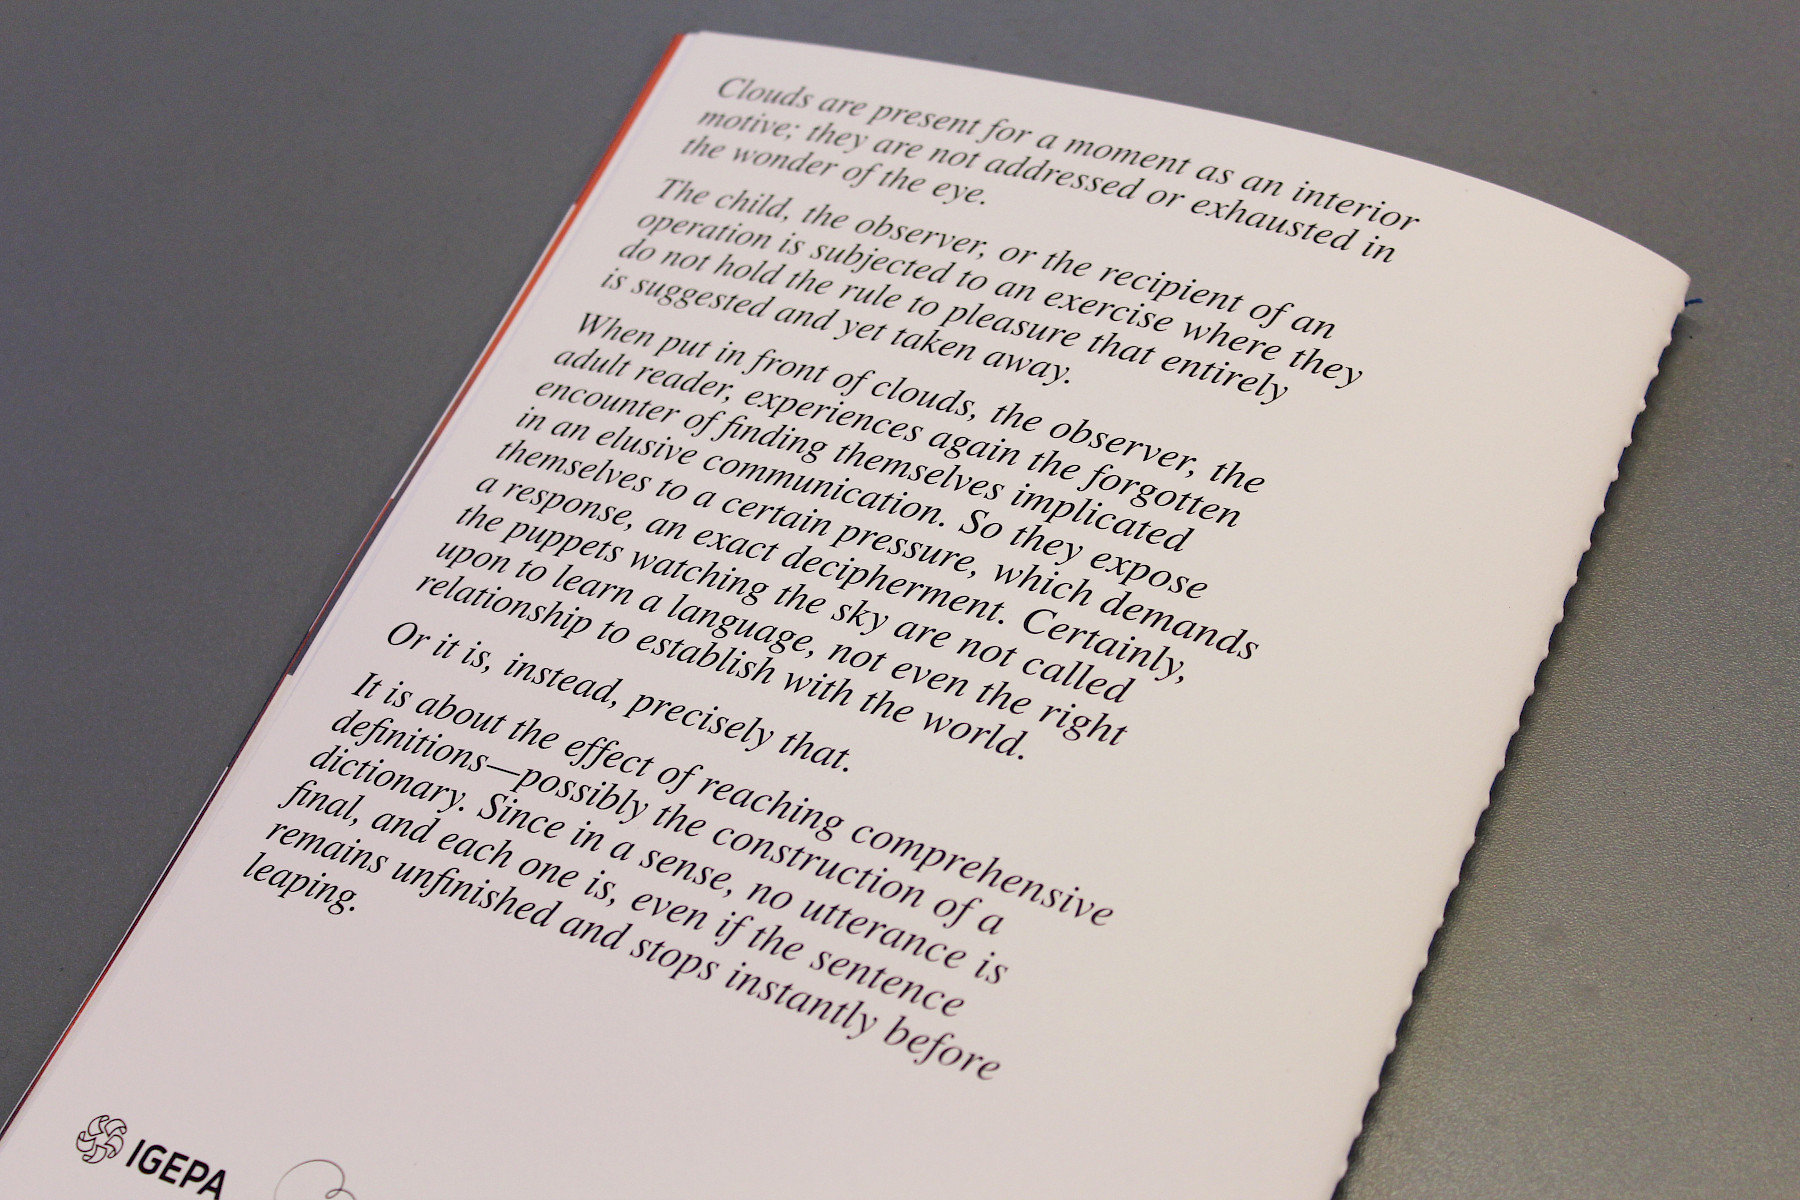 Clouds are present for a moment as an interior
motive; they are not addressed or exhausted in
the wonder of the eye.
The child, the observer, or the recipient of an
operation is subjected to an exercise where they
do not hold the rule to pleasure that entirely
is suggested and yet taken away.
When put in front of clouds, the observer, the
adult reader, experiences again the forgotten
encounter of finding themselves implicated
in an elusive communication. So they expose
themselves to a certain pressure, which demands
a response, an exact decipherment. Certainly,
the puppets watching the sky are not called
upon to learn a language, not even the right
relationship to establish with the world.
Or it is, instead, precisely that.
It is about the effect of reaching comprehensive
definitions—possibly the construction of a
dictionary. Since in a sense, no utterance is
final, and each one is, even if the sentence
remains unfinished and stops instantly before
leaping.
IGEPA